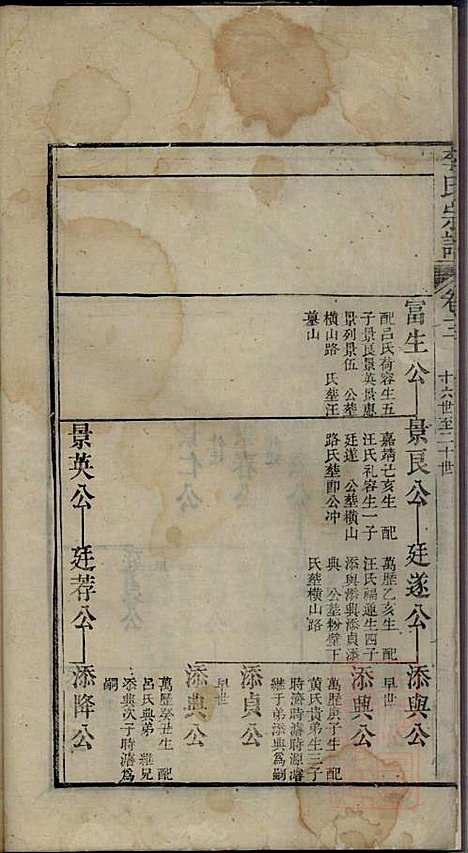 李氏宗譜
卷三
十六世至二十世
富生公
配呂氏荷容生五
子景良景英景惠
景列景伍 公塟
橫山路 氏塟汪
墓山
景良公
嘉靖 亥生 配
汪氏礼容生一子
廷遂 公塟橫山
路氏塟郎公冲
廷遂公
萬歷乙亥生 配
汪氏福蓮生四子
添與添典添貞添
典 公塟粉壁下
氏塟橫山路
添與公
早世
添興公
萬歷庚子生 配
黄氏 弟生三子
時濟時濬時源濬
継于弟添典為嗣
添貞公
早世
添典公
萬歷癸丑生 配
呂氏典弟 難兄
添典次子時濬為
嗣
景英公
廷荐公
添降公